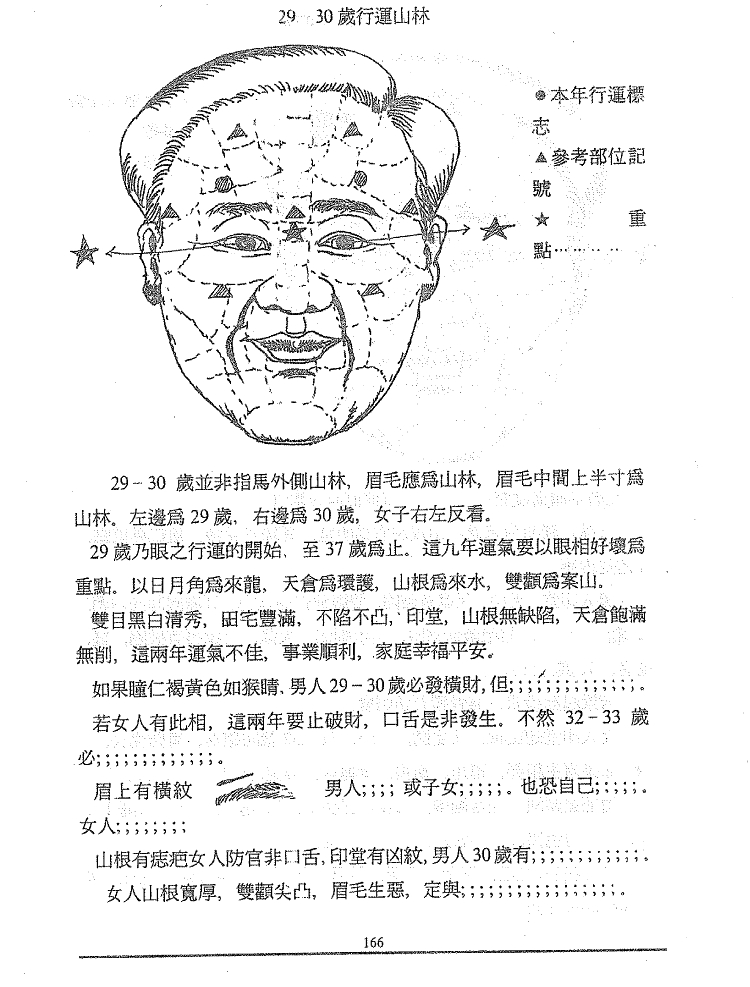 29 30歲行運山林
●本年行運標
志
▲參考部位記
號
☆ 重
點………
29－30 歲並非指馬外側山林，眉毛應爲山林，眉毛中間上半寸爲
山林。左邊爲 29 歲，右邊爲 30 歲，女子右左反看。
29 歲乃眼之行運的開始、至 37 歲爲止。這九年運氣要以眼相好壞爲
重點。以日月角爲來龍，天倉爲環護，山根爲來水，雙顴爲案山。
雙目黑白清秀，田宅豐滿，不陷不凸，印堂，山根無缺陷，天倉飽滿
無削，這兩年運氣不佳，事業順利，家庭幸福平安。
如果瞳仁褐黃色如猴睛、男人 29－30 歲必發橫財，但;;;;;;;;;;;;;;。
若女人有此相，這兩年要止破財，口舌是非發生。不然 32－33 歲
必;;;;;;;;;;;;;。
眉上有橫紋 男人;;;; 或子女;;;;;。也恐自己;;;;;。
女人;;;;;;;;
山根有痣疤女人防官非口舌，印堂有凶紋，男人 30 歲有;;;;;;;;;;;;;。
女人山根寬厚，雙顴尖凸，眉毛生惡，定與;;;;;;;;;;;;;;;;;。
166